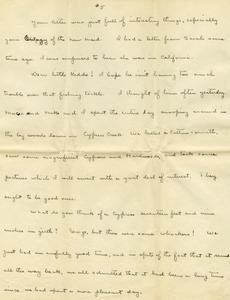 #5
Your letter was just full of interesting things, especially
your eulogy of the new maid. I had a letter from Sarah some
time ago. I was surprised to hear she was in California.
Dear little Kiddo! I hope he isn't having too much
trouble over that feeding tickle. I thought of him often yesterday.
and I spent the entire day snooping around in
the big woods down in Cypress Creek. We killed a Cotton-mouth,
saw some magnificent Cypress and Hardwoods, and took some
pictures which I will await with a great deal of interest. I
ought to be good ones.
What do you think of a Cypress seventeen feet and nine
inches in girth? Dings, but this was some whackers! We
just had an awfully good time, and in spite of the fact that it rained
all the way back, we all admitted that it had been a long time
since we had spent a more pleasant day.